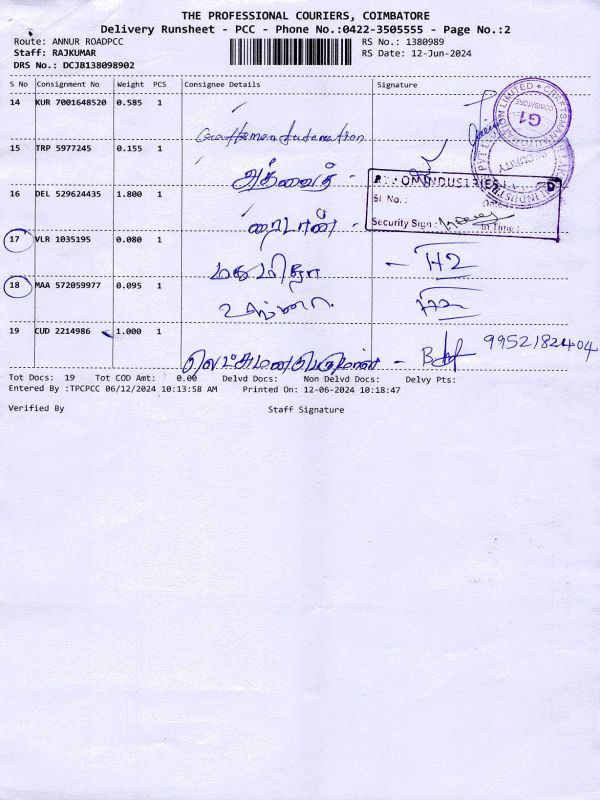 THE PROFESSIONAL COURIERS, COIMBATORE
Delivery Runsheet - PCC - Phone No.:0422-3505555 - Page No.:2
Route: ANNUR ROADPCC
RS No.: 1380989
Staff: RAJKUMAR
RS Date: 12-Jun-2024
DRS No.: DCJB138098902
S No Consignment No Weight PCS Consignee Details Signature
14 KUR 7001648520 0.585 1
Craftsman Automation
G1
COIMBATORE
15 TRP 5977245 0.155 1
அத்வைத் -
OM INDUSTRIES
Sl No. :
Security Sign :
In Time :
16 DEL 529624435 1.800 1
ரைடான் -
17 VLR 1035195 0.080 1
மகமித்ரா - H2
18 MAA 572059977 0.095 1
19 CUD 2214986 1.000 1
லெட்சுமணபெருமாள் -
9952182404
Tot Docs: 19 Tot COD Amt: 0.00 Delvd Docs: Non Delvd Docs: Delvy Pts:
Entered By :TPCPCC 06/12/2024 10:13:58 AM Printed On: 12-06-2024 10:18:47
Verified By Staff Signature